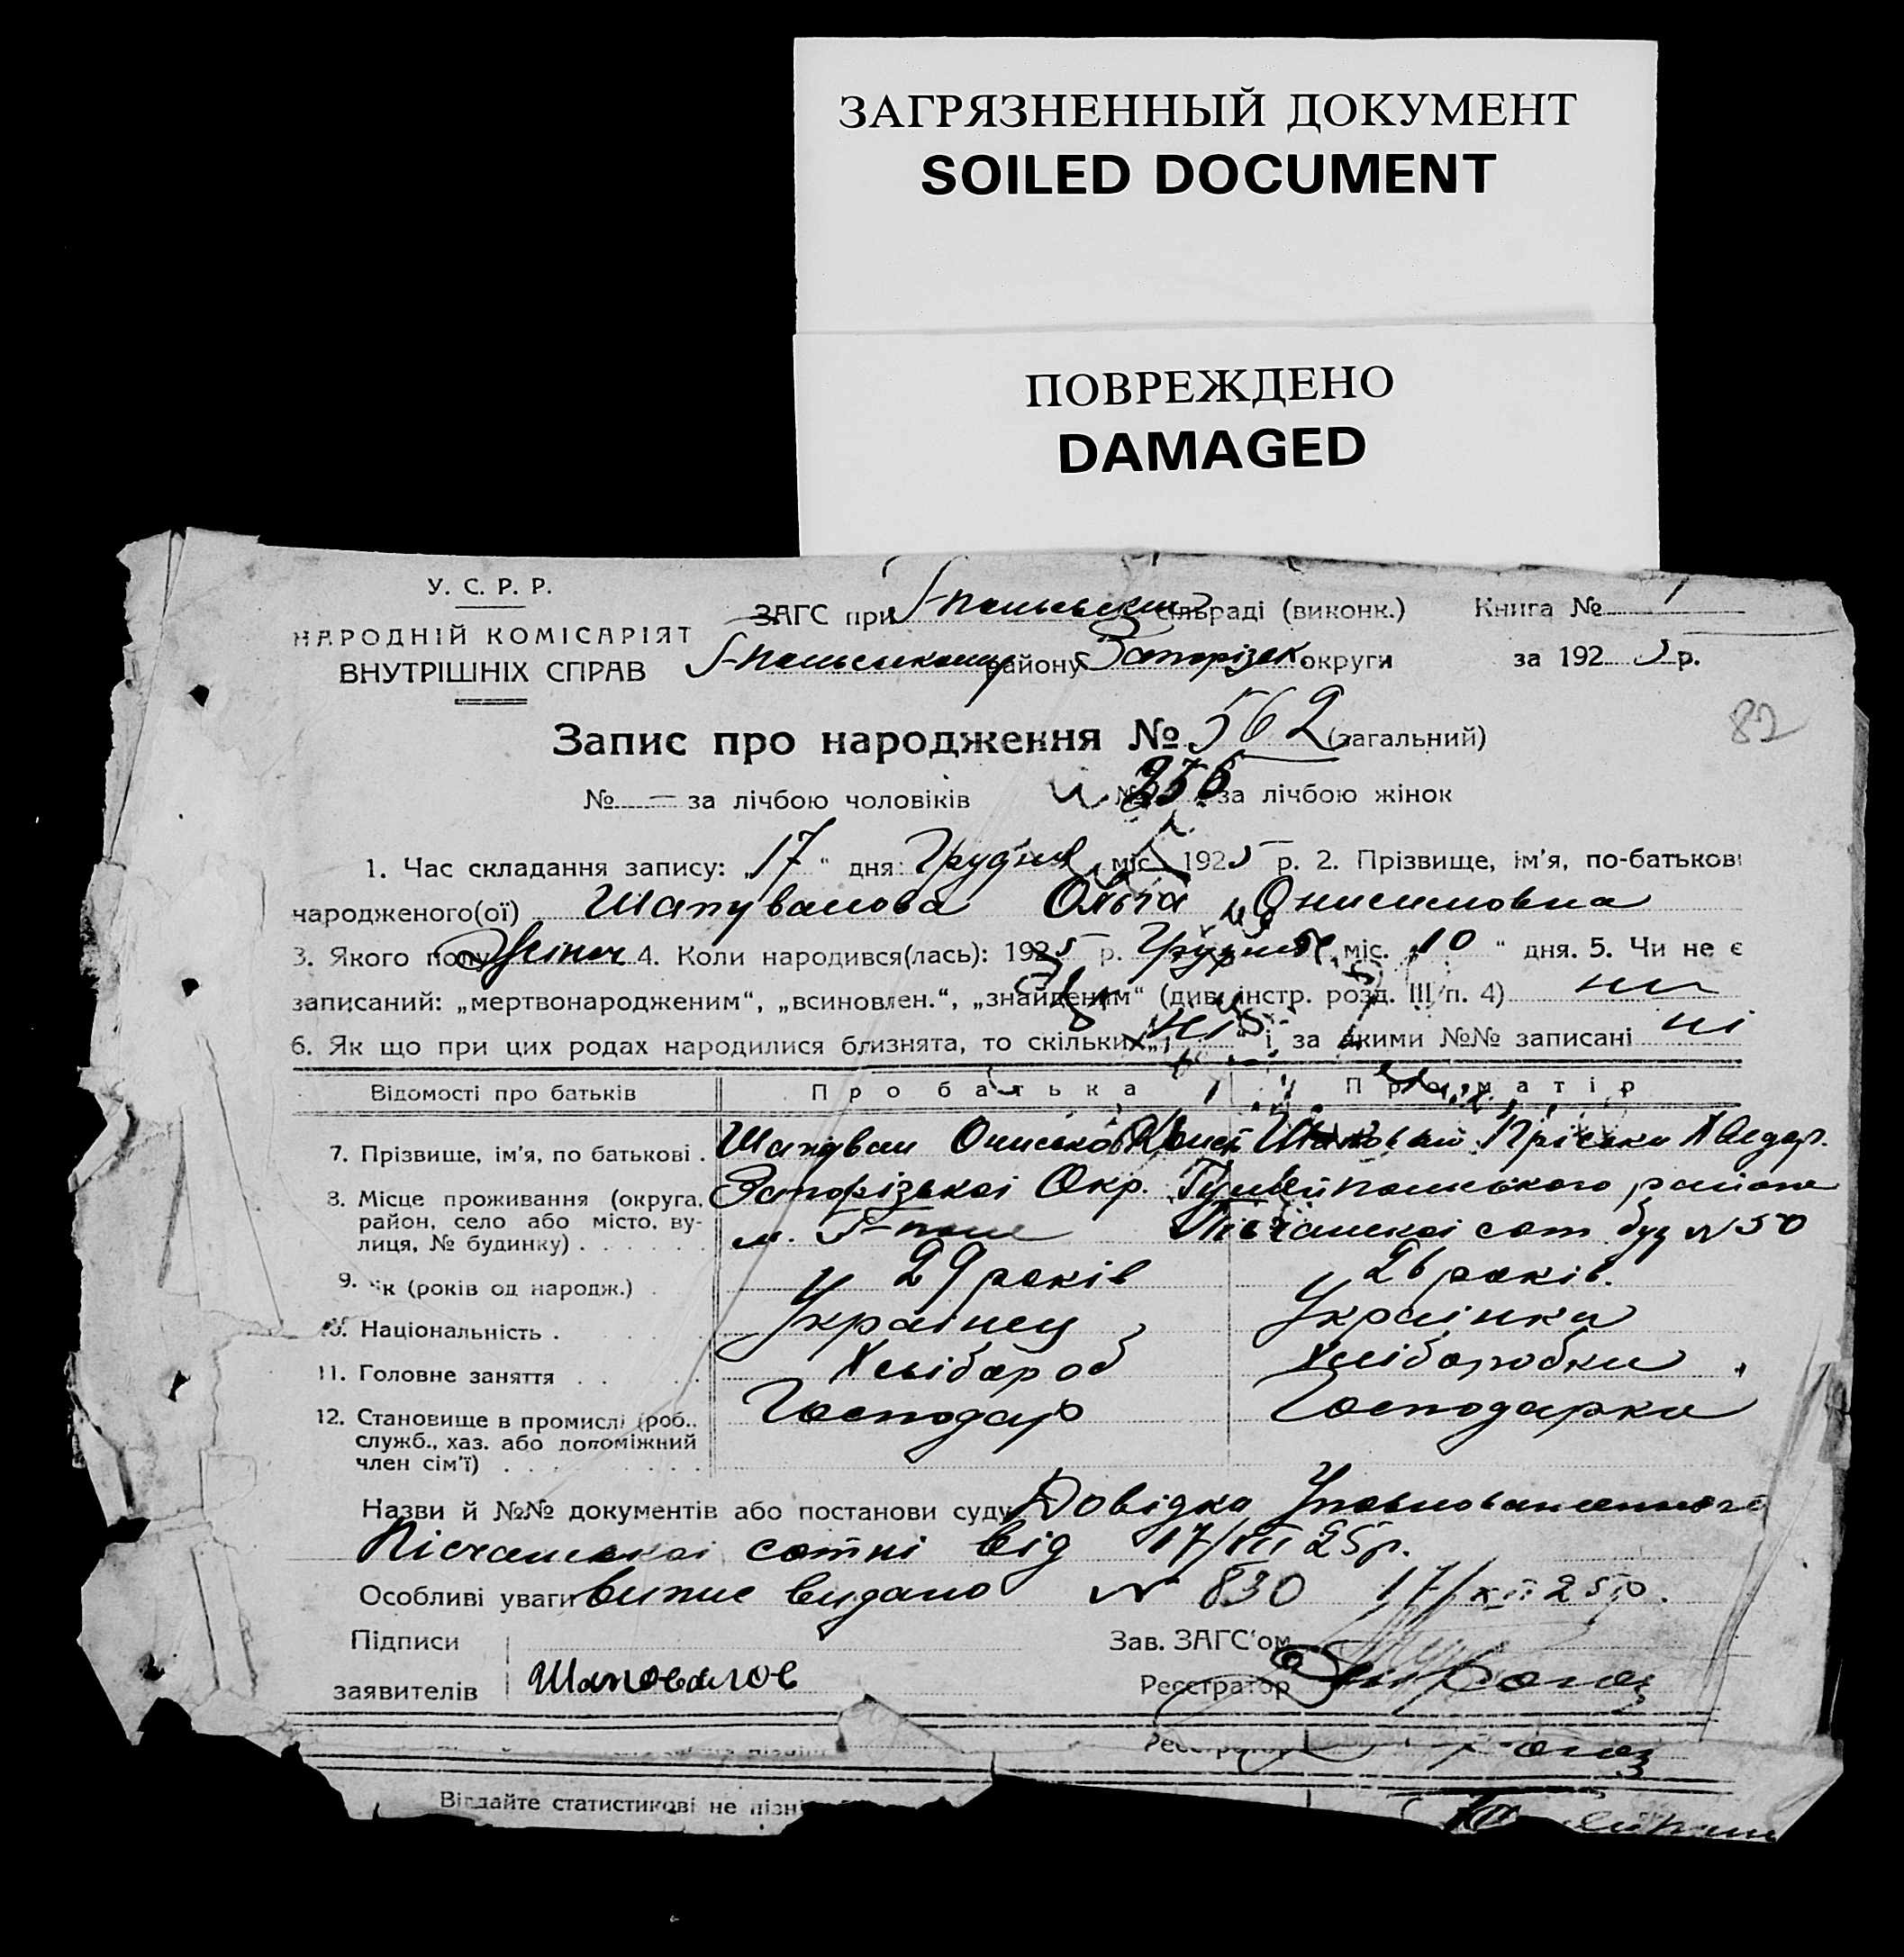 ЗАГРЯЗНЕННЫЙ ДОКУМЕНТ
SOILED DOCUMENT
ПОВРЕЖДЕНО
DAMAGED
У. С. Р. Р.
НАРОДНІЙ КОМІСАРІЯТ
ВНУТРІШНІХ СПРАВ
ЗАГС при Г-польський сільраді (виконк.) Книга № 1
району Запорізьк. округи за 1925 р.
82
Запис про народження № 562 (загальний)
№ — за лічбою чоловіків № 256 за лічбою жінок
1. Час складання запису: „17“ дня Грудня міс. 1925 р. 2. Прізвище, ім'я, по-батькові
народженого(ої) Шапувалова Ольга Онисимовна
3. Якого полу Жіноч 4. Коли народився(лась): 1925 р. Грудня міс. „10“ дня. 5. Чи не є
записаний: „мертвонародженим“, „всиновлен.“, „знайденим“ (див. інстр. розд. III п. 4) ні
6. Як що при цих родах народилися близнята, то скільки „ні“ і за якими №№ записані ні
Відомості про батьків Про батька Про матір
7. Прізвище, ім'я, по батькові . Шапувал Онисько Шаповал Пріська Хведор.
8. Місце проживання (округа, Запорізькоі Окр. Гуляйпольського района
район, село або місто, ву-
лиця, № будинку) м. Г-поле Пісчанскоі сот. буд № 50
9. Вік (років од народж.) . 29 років 26 років.
10. Національність . Украінец Украінка
11. Головне заняття . . Хлібороб Хліборобка
12. Становище в промислі (роб., Господар Господарка
служб., хаз. або допоміжний
член сім'ї)
Назви й №№ документів або постанови суду Довідка Уповноваженного
Пісчанскоі сотні від 17/XII 25 р.
Особливі уваги Випис видано № 830 17/XII 25 р.
Підписи Зав. ЗАГС'ом
заявителів Шаповалов Реєстратор
Реєстратор
Віддайте статистикові не пізні